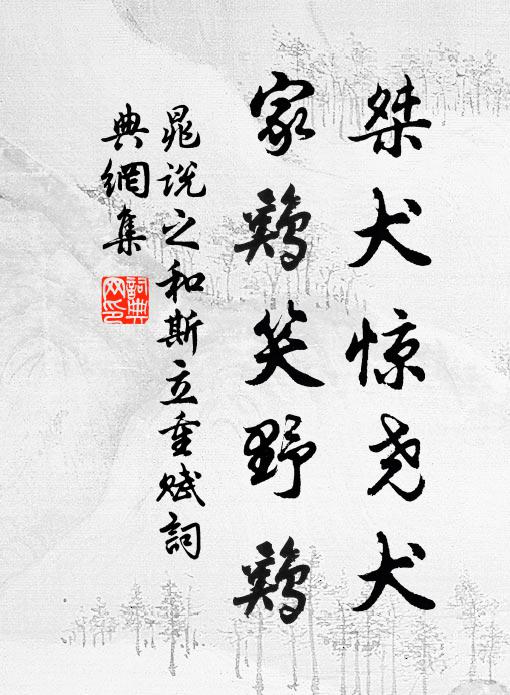 桀犬惊尧犬
家鸡笑野鸡
晁说之和斯立重赋詞
典網集
詞典網印